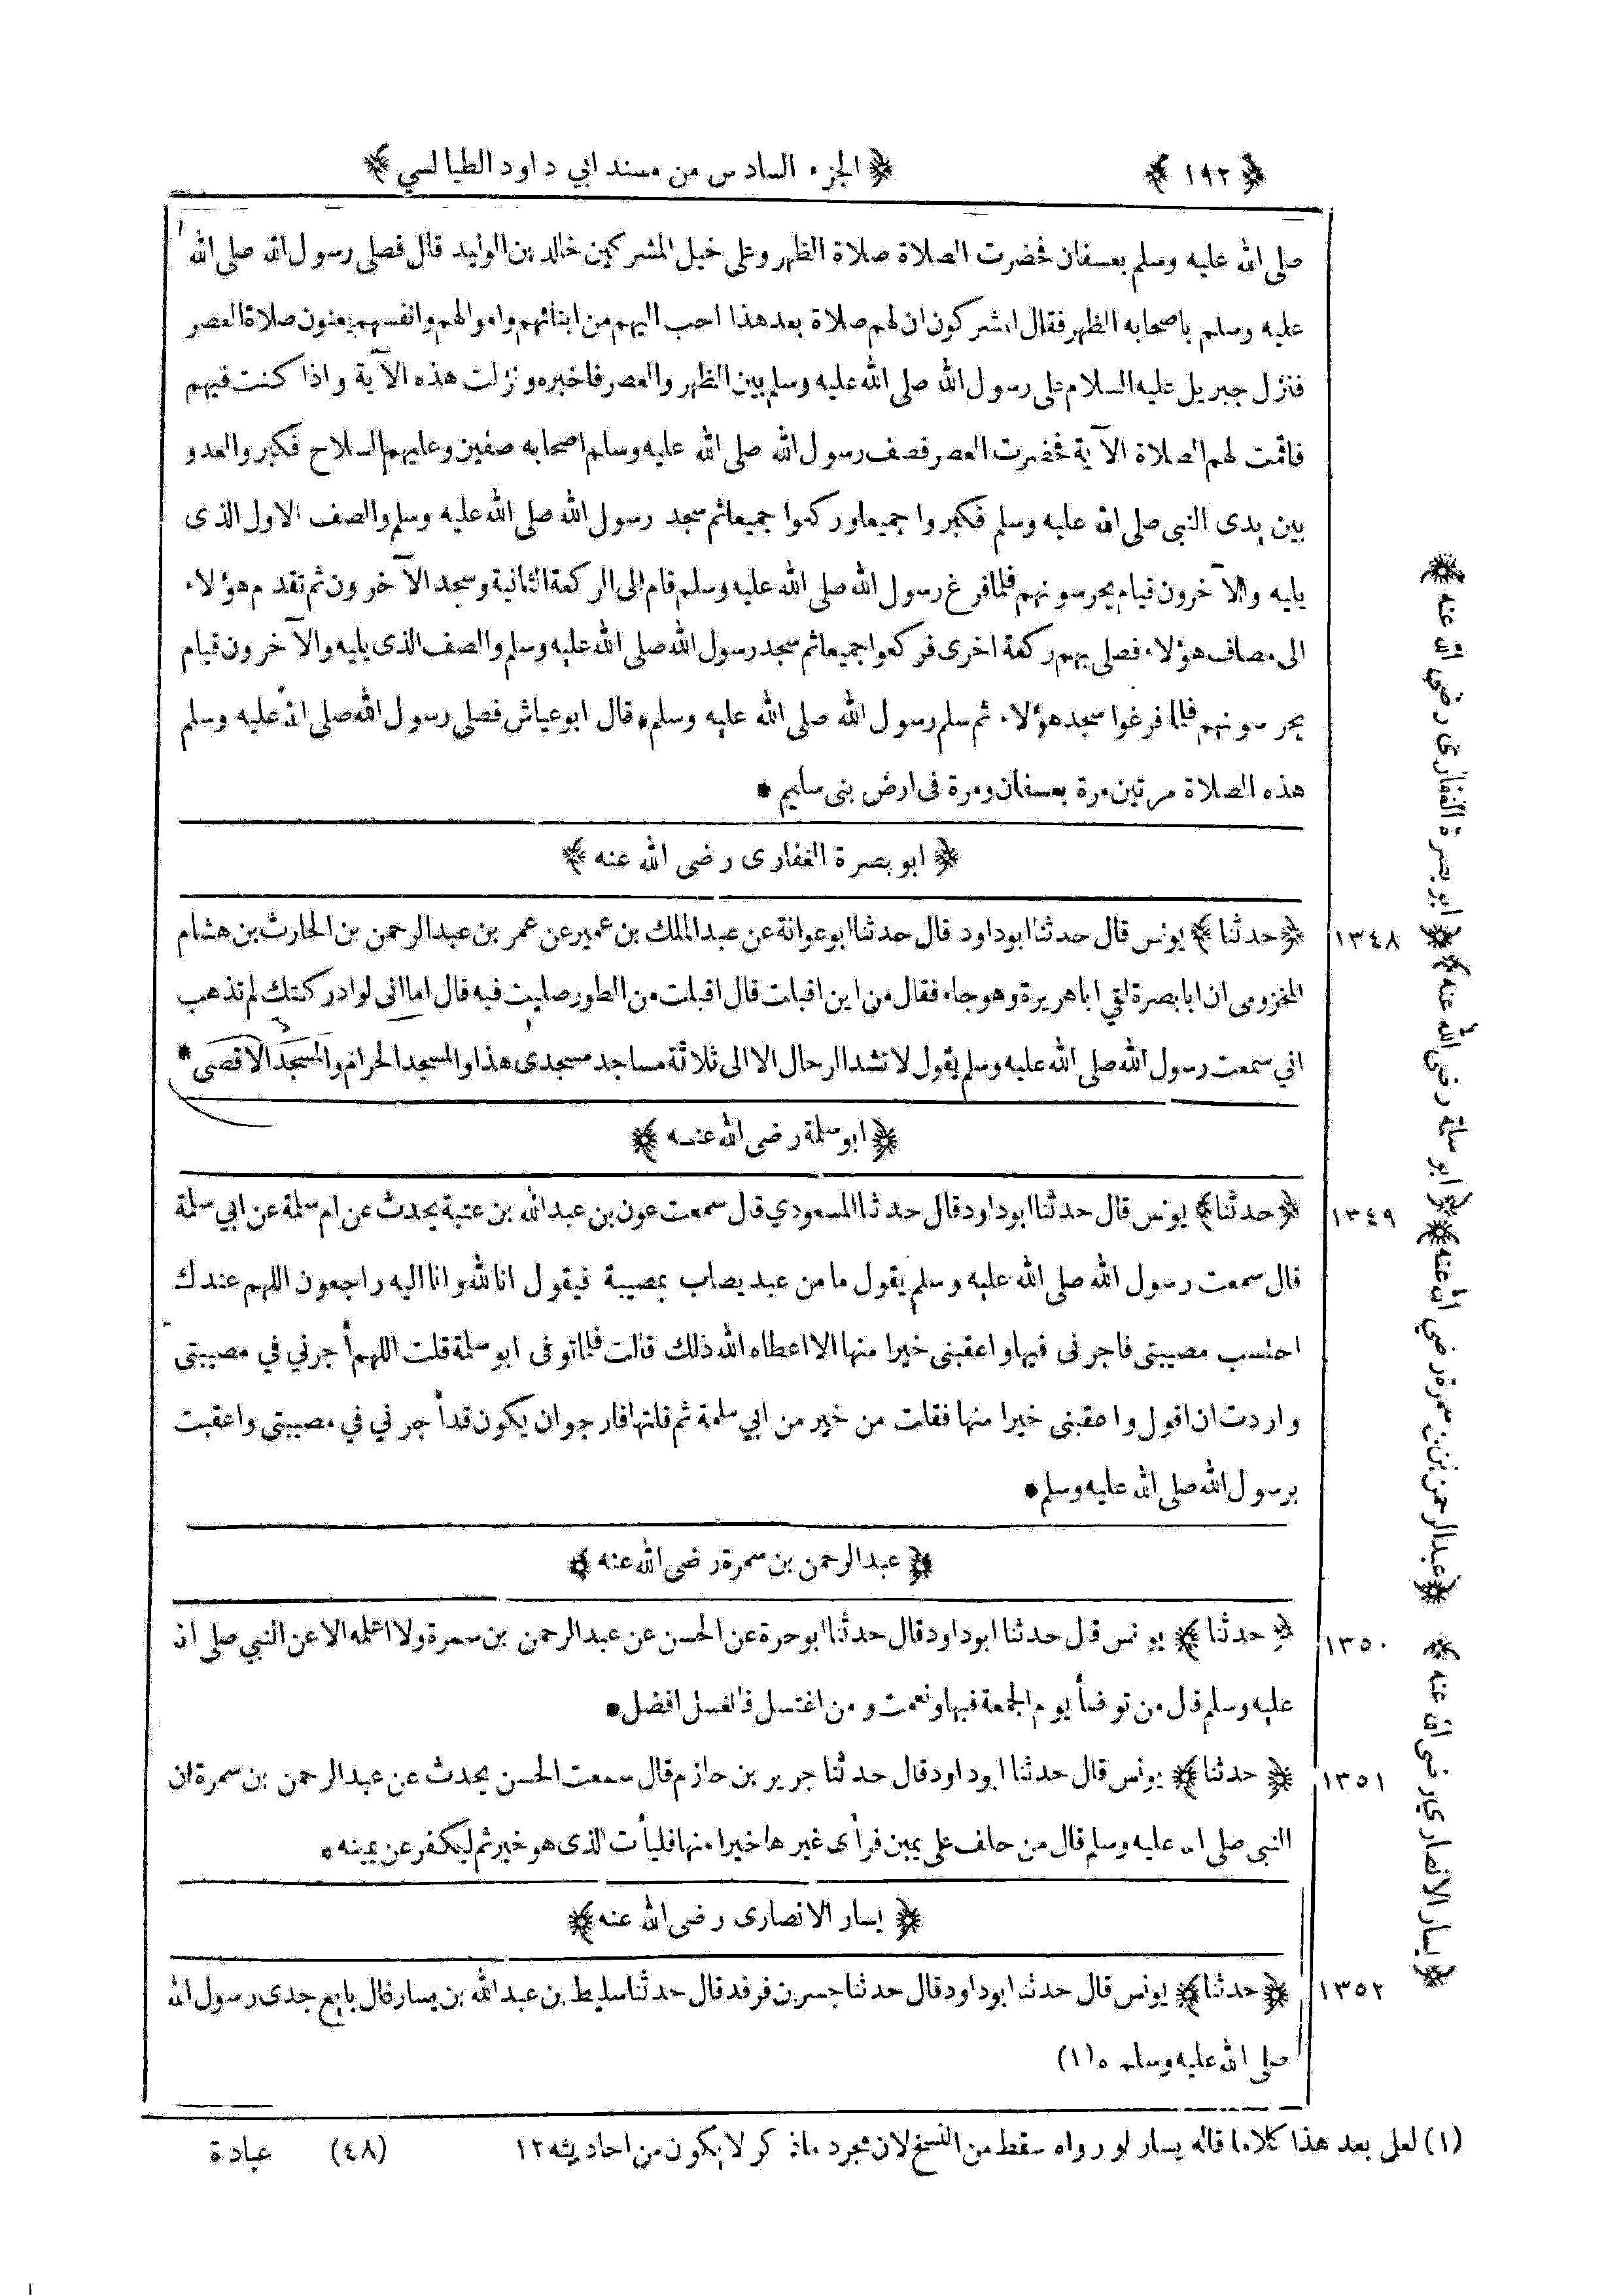 ﴿ ١٩٢ ﴾ ﴿ الجزء السادس من مسند ابي داود الطيالسي ﴾
صلى الله عليه وسلم بعسفان فحضرت الصلاة صلاة الظهر وعلى خيل المشركين خالد بن الوليد قال فصلى رسول الله صلى الله
عليه وسلم باصحابه الظهر فقال المشركون ان لهم صلاة بعد هذا احب اليهم من ابنائهم واموالهم وانفسهم يعنون صلاة العصر
فنزل جبريل عليه السلام على رسول الله صلى الله عليه وسلم بين الظهر والعصر فاخبره ونزلت هذه الآية واذا كنت فيهم
فاقمت لهم الصلاة الآية فحضرت العصر فصف رسول الله صلى الله عليه وسلم اصحابه صفين وعليهم السلاح فكبر والعدو
بين يدى النبى صلى الله عليه وسلم فكبروا جميعا وركعوا جميعا ثم سجد رسول الله صلى الله عليه وسلم والصف الاول الذى
يليه والآخرون قيام يحرسونهم فلما فرغ رسول الله صلى الله عليه وسلم قام الى الركعة الثانية وسجد الآخرون ثم تقدم هؤلاء
الى مصاف هؤلاء فصلى بهم ركعة اخرى فركعوا جميعا ثم سجد رسول الله صلى الله عليه وسلم والصف الذى يليه والآخرون قيام
يحرسونهم فلما فرغوا سجد هؤلاء ثم سلم رسول الله صلى الله عليه وسلم * قال ابو عياش فصلى رسول الله صلى الله عليه وسلم
هذه الصلاة مرتين مرة بعسفان ومرة فى ارض بنى سليم *
﴿ ابو بصرة الغفارى رضى الله عنه ﴾
١٣٤٨ ﴿ حدثنا ﴾ يونس قال حدثنا ابو داود قال حدثنا ابو عوانة عن عبد الملك بن عمير عن عمر بن عبد الرحمن بن الحارث بن هشام
المخزومى ان ابا بصرة لقي ابا هريرة وهو جاء فقال من اين اقبلت قال اقبلت من الطور صليت فيه قال اما انى لو ادركتك لم تذهب
اني سمعت رسول الله صلى الله عليه وسلم يقول لا تشد الرحال الا الى ثلاثة مساجد مسجدى هذا والمسجد الحرام والمسجد الاقصى *
﴿ ابو سلمة رضى الله عنه ﴾
١٣٤٩ ﴿ حدثنا ﴾ يونس قال حدثنا ابو داود قال حدثنا المسعودي قال سمعت عون بن عبد الله بن عتبة يحدث عن ام سلمة عن ابي سلمة
قال سمعت رسول الله صلى الله عليه وسلم يقول ما من عبد يصاب بمصيبة فيقول انا لله وانا اليه راجعون اللهم عندك
احتسب مصيبتى فاجرنى فيها واعقبنى خيرا منها الا اعطاه الله ذلك قالت فلما توفى ابو سلمة قلت اللهم أجرني في مصيبتى
واردت ان اقول واعقبنى خيرا منها فقلت من خير من ابي سلمة ثم قلتها فارجو ان يكون قد أجرني في مصيبتى واعقبت
برسول الله صلى الله عليه وسلم *
﴿ عبد الرحمن بن سمرة رضى الله عنه ﴾
١٣٥٠ ﴿ حدثنا ﴾ يونس قال حدثنا ابو داود قال حدثنا ابو حرة عن الحسن عن عبد الرحمن بن سمرة ولا اعلمه الا عن النبي صلى الله
عليه وسلم قال من توضأ يوم الجمعة فبها ونعمت ومن اغتسل فالغسل افضل *
١٣٥١ ﴿ حدثنا ﴾ يونس قال حدثنا ابو داود قال حدثنا جرير بن حازم قال سمعت الحسن يحدث عن عبد الرحمن بن سمرة ان
النبى صلى الله عليه وسلم قال من حلف على يمين فرأى غيرها خيرا منها فليأت الذى هو خير ثم ليكفر عن يمينه *
﴿ يسار الانصارى رضى الله عنه ﴾
١٣٥٢ ﴿ حدثنا ﴾ يونس قال حدثنا ابو داود قال حدثنا جسر بن فرقد قال حدثنا سليط بن عبد الله بن يسار قال بايع جدى رسول الله
صلى الله عليه وسلم * (١)
(١) لعل بعد هذا كلاما قاله يسار او رواه سقط من النسخ لان مجرد ماذكر لا يكون من احاديثه ١٢ (٤٨) عبادة
﴿ ابو بصرة الغفارى رضى الله عنه ﴾
﴿ ابو سلمة رضى الله عنه ﴾
﴿ عبد الرحمن بن سمرة رضي الله عنه ﴾
﴿ يسار الانصاري رضى الله عنه ﴾